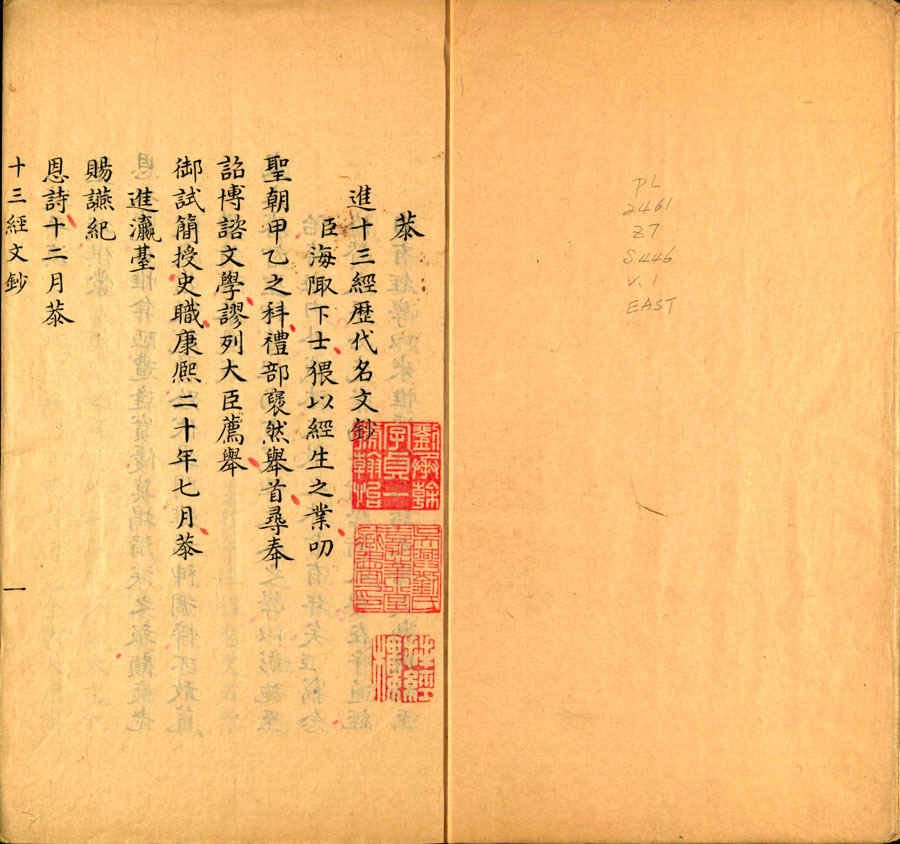 PL
2461
Z7
S446
V.1
EAST
恭
進十三經歴代名文鈔
臣海陬下士猥以經生之業叨
聖朝甲乙之科禮部褎然舉首尋奉
詔博諮文學謬列大臣薦舉
御試簡授史職康熙二十年七月恭
進瀛臺
賜讌紀
恩詩十二月恭
十三經文鈔
一
劉承幹字貞一號翰怡
吳興劉氏嘉業堂藏書印